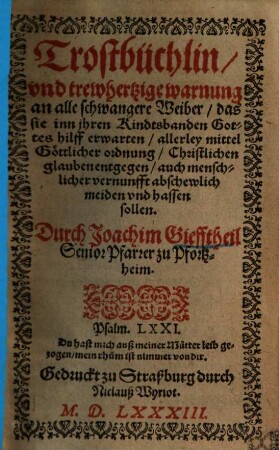 Trostbüchlin/
vnd trewhertzige warnung
an alle schwangere Weiber / das
sie inn jhren Kindtsbanden Got-
tes hilff erwarten / allerley mittel
Göttlicher ordnung / Christlichen
glauben entgegen / auch mensch-
licher vernunfft abschewlich
meiden vnd hassen
sollen.
Durch Joachim Giefftheil
Senior Pfarrer zu Pfortz-
heim.
Psalm. LXXI.
Du hast mich auß meiner Mütter leib ge-
zogen / mein rhům ist nimmer von dir.
Gedruckt zu Straßburg durch
Niclauß Wyriot.
M. D. LXXXIII.